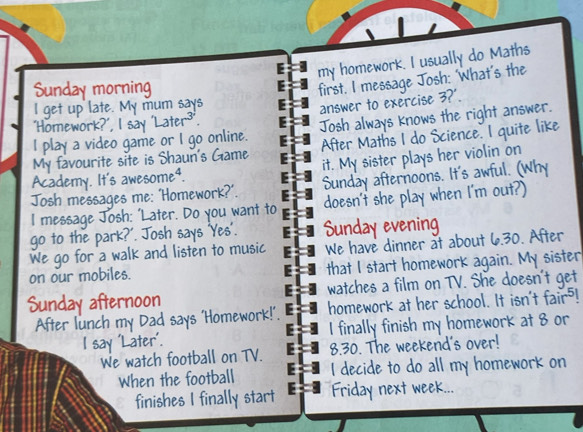 Sunday morning
I get up late. My mum says
'Homework?', I say 'Later³'.
I play a video game or I go online.
My favourite site is Shaun's Game
Academy. It's awesome⁴.
Josh messages me: 'Homework?'.
I message Josh: 'Later. Do you want to
go to the park?'. Josh says 'Yes'.
We go for a walk and listen to music
on our mobiles.
Sunday afternoon
After lunch my Dad says 'Homework!'.
I say 'Later'.
We watch football on TV.
When the football
finishes I finally start
my homework. I usually do Maths
first. I message Josh: 'What's the
answer to exercise 3?'.
Josh always knows the right answer.
After Maths I do Science. I quite like
it. My sister plays her violin on
Sunday afternoons. It's awful. (Why
doesn't she play when I'm out?)
Sunday evening
We have dinner at about 6.30. After
that I start homework again. My sister
watches a film on TV. She doesn't get
homework at her school. It isn't fair⁵!
I finally finish my homework at 8 or
8.30. The weekend's over!
I decide to do all my homework on
Friday next week...